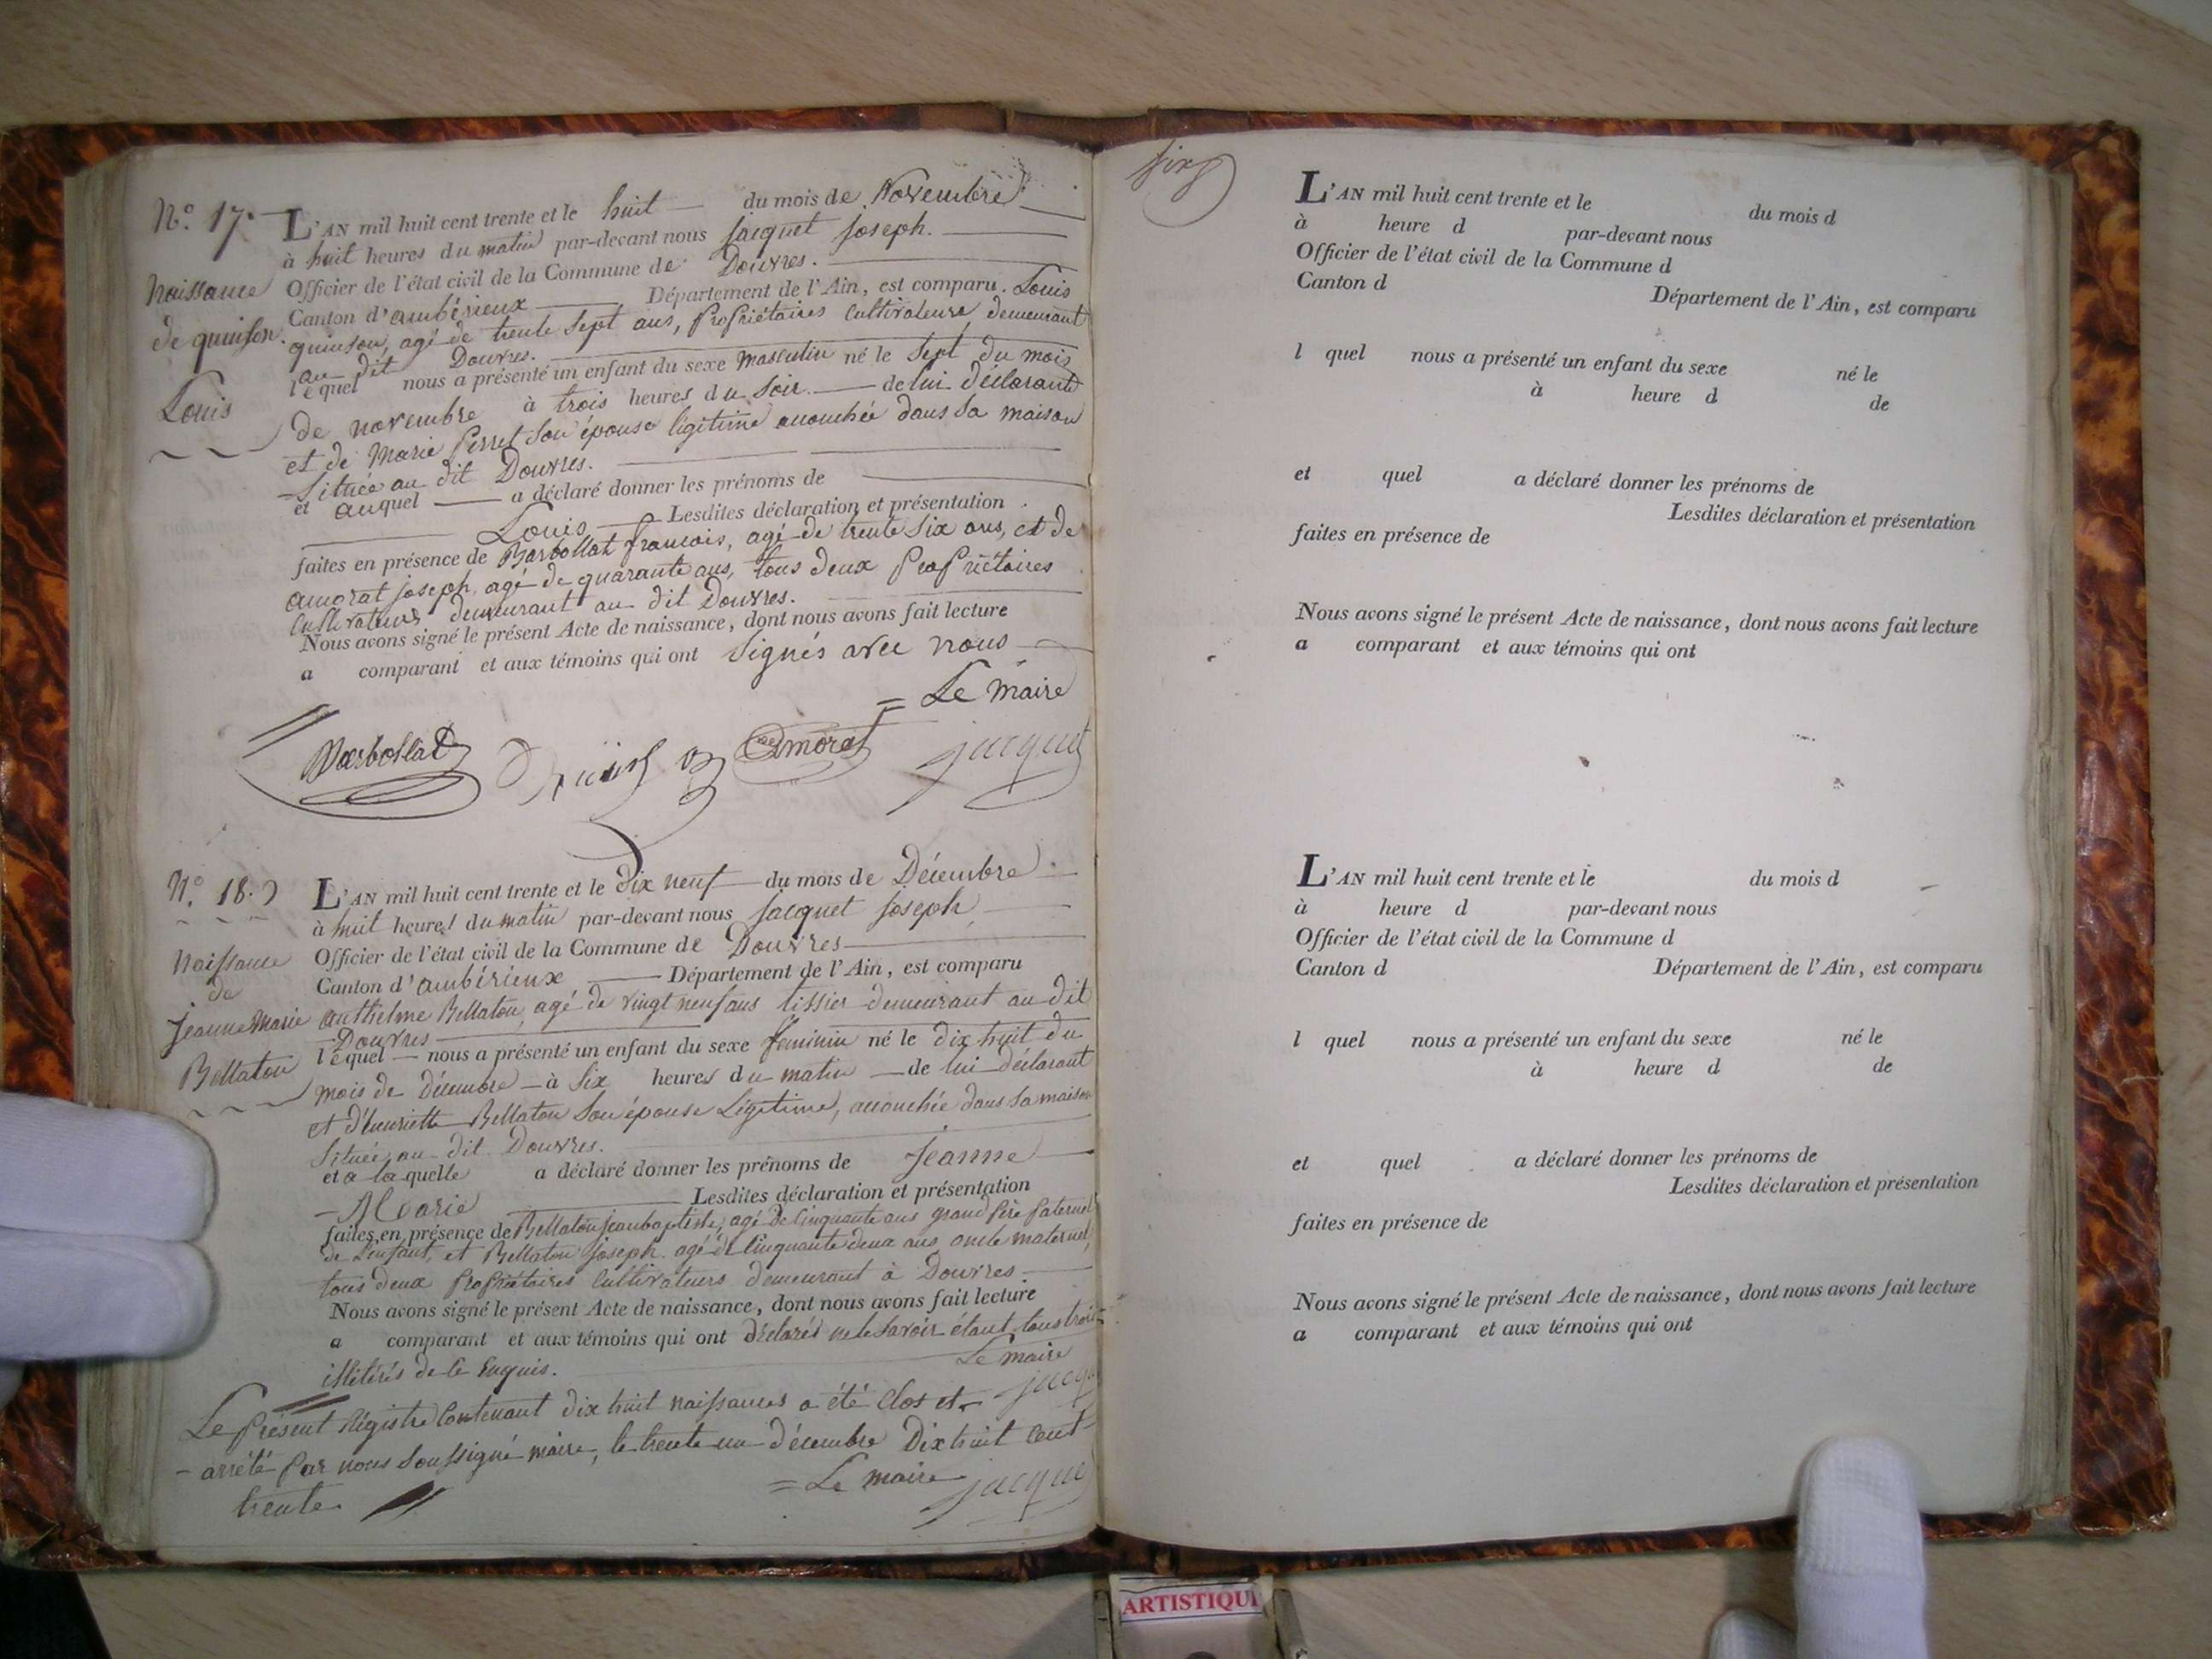 N.° 17.
Naissance
de quinson
Louis
L'AN mil huit cent trente et le huit du mois de Novembre
à huit heures du matin par-devant nous Jacquet Joseph.
Officier de l'état civil de la Commune de Douvres.
Canton d'ambérieux Département de l'Ain, est comparu. Louis
quinson, agé de trente sept ans, Propriétaires Cultivateurs demeurant
au dit Douvres.
lequel nous a présenté un enfant du sexe masculin né le Sept du mois
de novembre à trois heures du Soir. de lui déclarant
et de Marie Perret Son épouse légitime accouchée dans Sa maison
Située au dit Douvres.
et auquel a déclaré donner les prénoms de
Louis Lesdites déclaration et présentation
faites en présence de Barbollat francois, agé de trente Six ans, et de
amorat joseph, agé de quarante ans, tous deux Propriétaires
Cultivateurs demeurant au dit Douvres.
Nous avons signé le présent Acte de naissance, dont nous avons fait lecture
a comparant et aux témoins qui ont Signés avec nous
= Le Maire
Barbollat Quinson Amorat jacquet
N.° 18.
Naissance
de
Jeanne Marie
Bellaton
L'AN mil huit cent trente et le Dix neuf du mois de Décembre
à huit heures du matin par-devant nous Jacquet Joseph
Officier de l'état civil de la Commune de Douvres
Canton d'ambérieux Département de l'Ain, est comparu
Anthelme Bellaton, agé de vingt neuf ans tissier demeurant au dit
Douvres
lequel nous a présenté un enfant du sexe feminin né le dix huit du
mois de Décembre à Six heures du matin de lui déclarant
et d'henriette Bellaton Son épouse Légitime, accouchée dans Sa maison
Située au dit Douvres.
et a laquelle a déclaré donner les prénoms de Jeanne
Marie Lesdites déclaration et présentation
faites en présence de Bellaton jean baptiste, agé de Cinquante ans grand père paternel
de L'enfant, et Bellaton joseph agé de Cinquante deux ans oncle maternel,
tous deux Propriétaires Cultivateurs demeurant à Douvres.
Nous avons signé le présent Acte de naissance, dont nous avons fait lecture
a comparant et aux témoins qui ont déclarés ne le Savoir étant tous trois
illitérés de ce Enquis.
Le maire
jacquet
Le Présent Régistre Contenant dix huit naissances a été Clos et
arrêté Par nous Soussigné maire, le trente un décembre Dix huit Cent
trente
= Le maire jacquet
six
L'AN mil huit cent trente et le du mois d
à heure d par-devant nous
Officier de l'état civil de la Commune d
Canton d Département de l'Ain, est comparu
l quel nous a présenté un enfant du sexe né le
à heure d de
et quel a déclaré donner les prénoms de
Lesdites déclaration et présentation
faites en présence de
Nous avons signé le présent Acte de naissance, dont nous avons fait lecture
a comparant et aux témoins qui ont
L'AN mil huit cent trente et le du mois d
à heure d par-devant nous
Officier de l'état civil de la Commune d
Canton d Département de l'Ain, est comparu
l quel nous a présenté un enfant du sexe né le
à heure d de
et quel a déclaré donner les prénoms de
Lesdites déclaration et présentation
faites en présence de
Nous avons signé le présent Acte de naissance, dont nous avons fait lecture
a comparant et aux témoins qui ont
ARTISTIQU